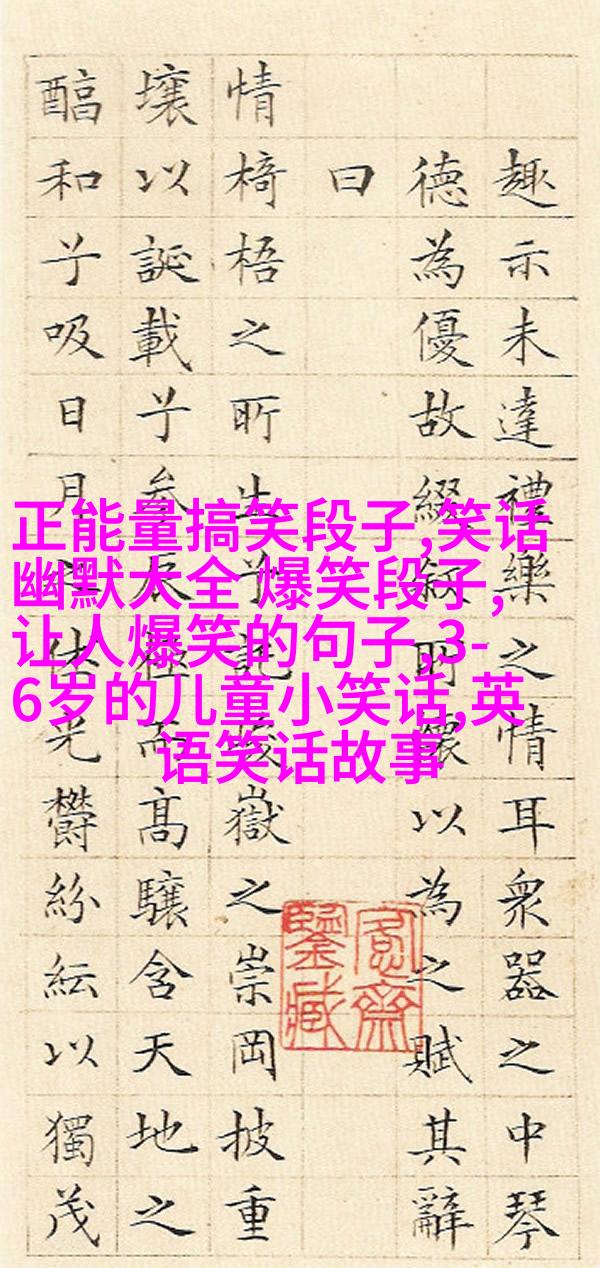 趣示未達禮樂之情耳衆器之中琴
德為優故綴叙所懷以為之賦其辭
曰
情椅梧之所生兮託峻嶽之崇岡披重
壤以誕載兮参辰極而高驤含天地之
醕和兮吸日月之休光鬱紛紜以獨茂
正能量搞笑段子,笑话
幽默大全 爆笑段子,
让人爆笑的句子,3-
6岁的儿童小笑话,英
语笑话故事
愙齋
鑒藏